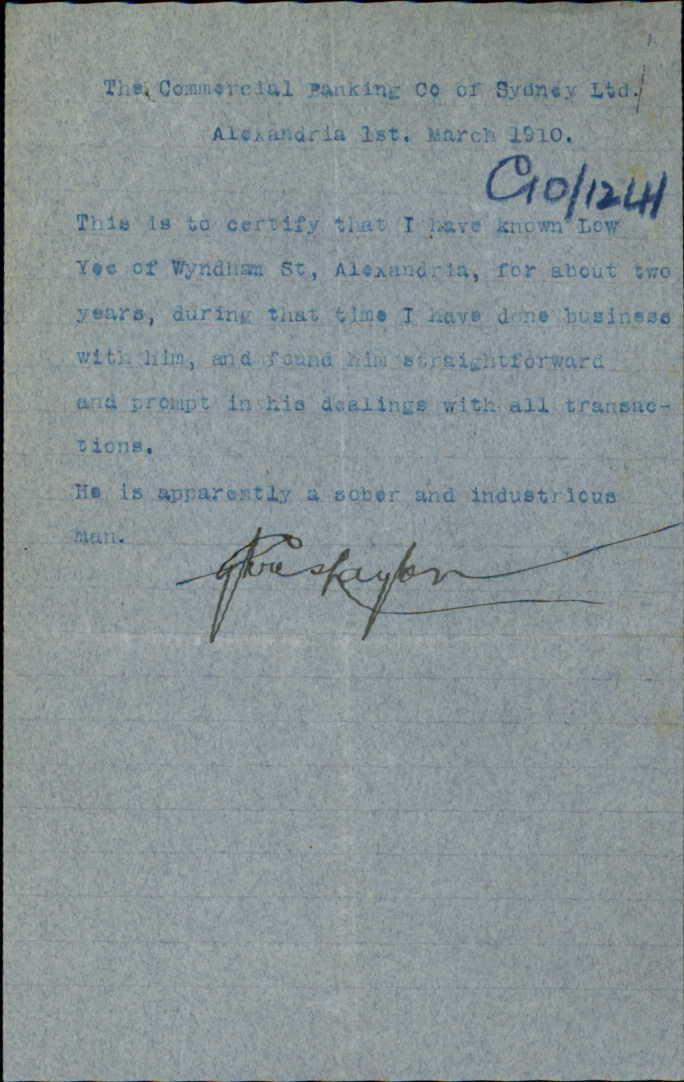 The Commercial Banking Co of Sydney Ltd.
Alexandria 1st. March 1910.
C10/1241
This is to certify that I have known Low
Yee of Wyndham St, Alexandria, for about two
years, during that time I have done business
with him, and found him straightforward
and prompt in his dealings with all transac-
tions.
He is apparently a sober and industrious
man.